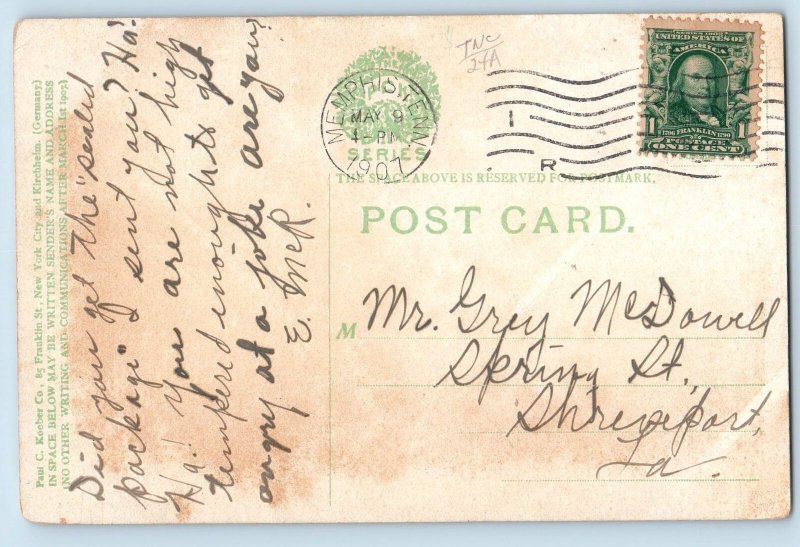 Paul C. Koeber Co., 85 Franklin St., New York City and Kirchheim, (Germany.)
IN SPACE BELOW MAY BE WRITTEN SENDER'S NAME AND ADDRESS
(NO OTHER WRITING AND COMMUNICATIONS AFTER MARCH 1st 1907.)
Did you get the "sealed
package" I sent you? Ha!
Ha! You are not high
tempered inought to get
angry at a joke are you?
E. McR.
SERIES
MEMPHIS, TENN.
MAY 9
4-PM
1907
TNC
24A
I
R
SERIES 1902
UNITED STATES OF
AMERICA
1706 FRANKLIN 1790
1 1
POSTAGE
ONE CENT
THE SPACE ABOVE IS RESERVED FOR POSTMARK.
POST CARD.
M Mr. Grey McDowell
Spring St.,
Shreveport,
La.